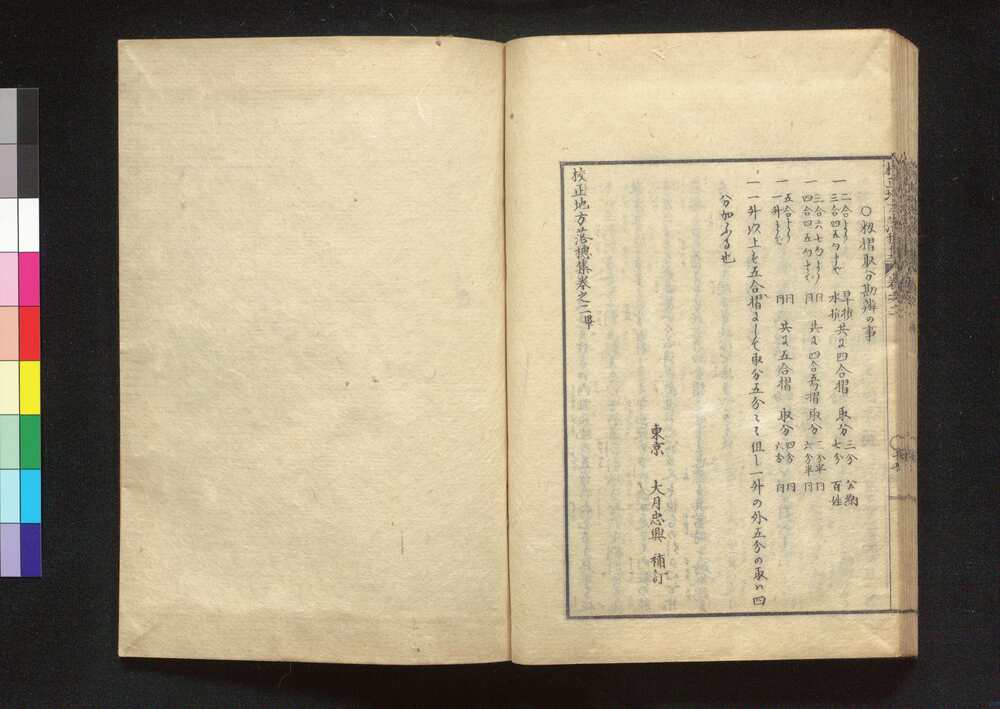 〇籾摺取分勘辨の事
一 二合ゟ 三合四五勺まて 早損 水損 共ニ四合摺 取分 三分 公納 七分 百姓
一 三合六七勺ゟ 四合四五勺まて 同 共ニ四合五勺摺 取分 三分半 同 六分半 同
一 五合ゟ 一升まて 同 同 共ニ五合摺 取分 四分 同 六分 同
一 一升以上も五合摺にして取分五分々々但し一升の外五分の取ハ四
分加ふる也
東京 大月忠興 補訂
校正地方落穂集巻之二畢